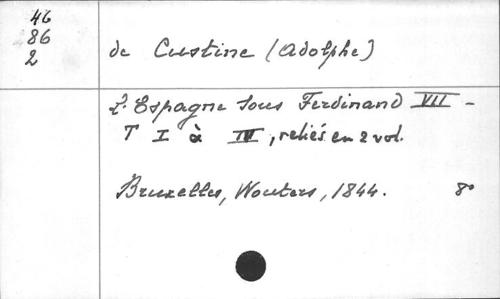 46
86
2
de Custine (Adolphe)
L'Espagne sous Ferdinand VII -
T I à IV, reliés en 2 vol.
Bruxelles, Wouters, 1844. 8°